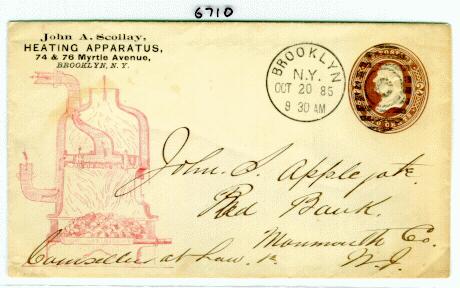 6710
John A. Scollay,
HEATING APPARATUS,
74 & 76 Myrtle Avenue,
BROOKLYN, N. Y.
BROOKLYN
N.Y.
OCT 20 85
9 30 AM
John S. Applegate
Red Bank.
Monmouth Co.
Counsellor at Law. N.J.